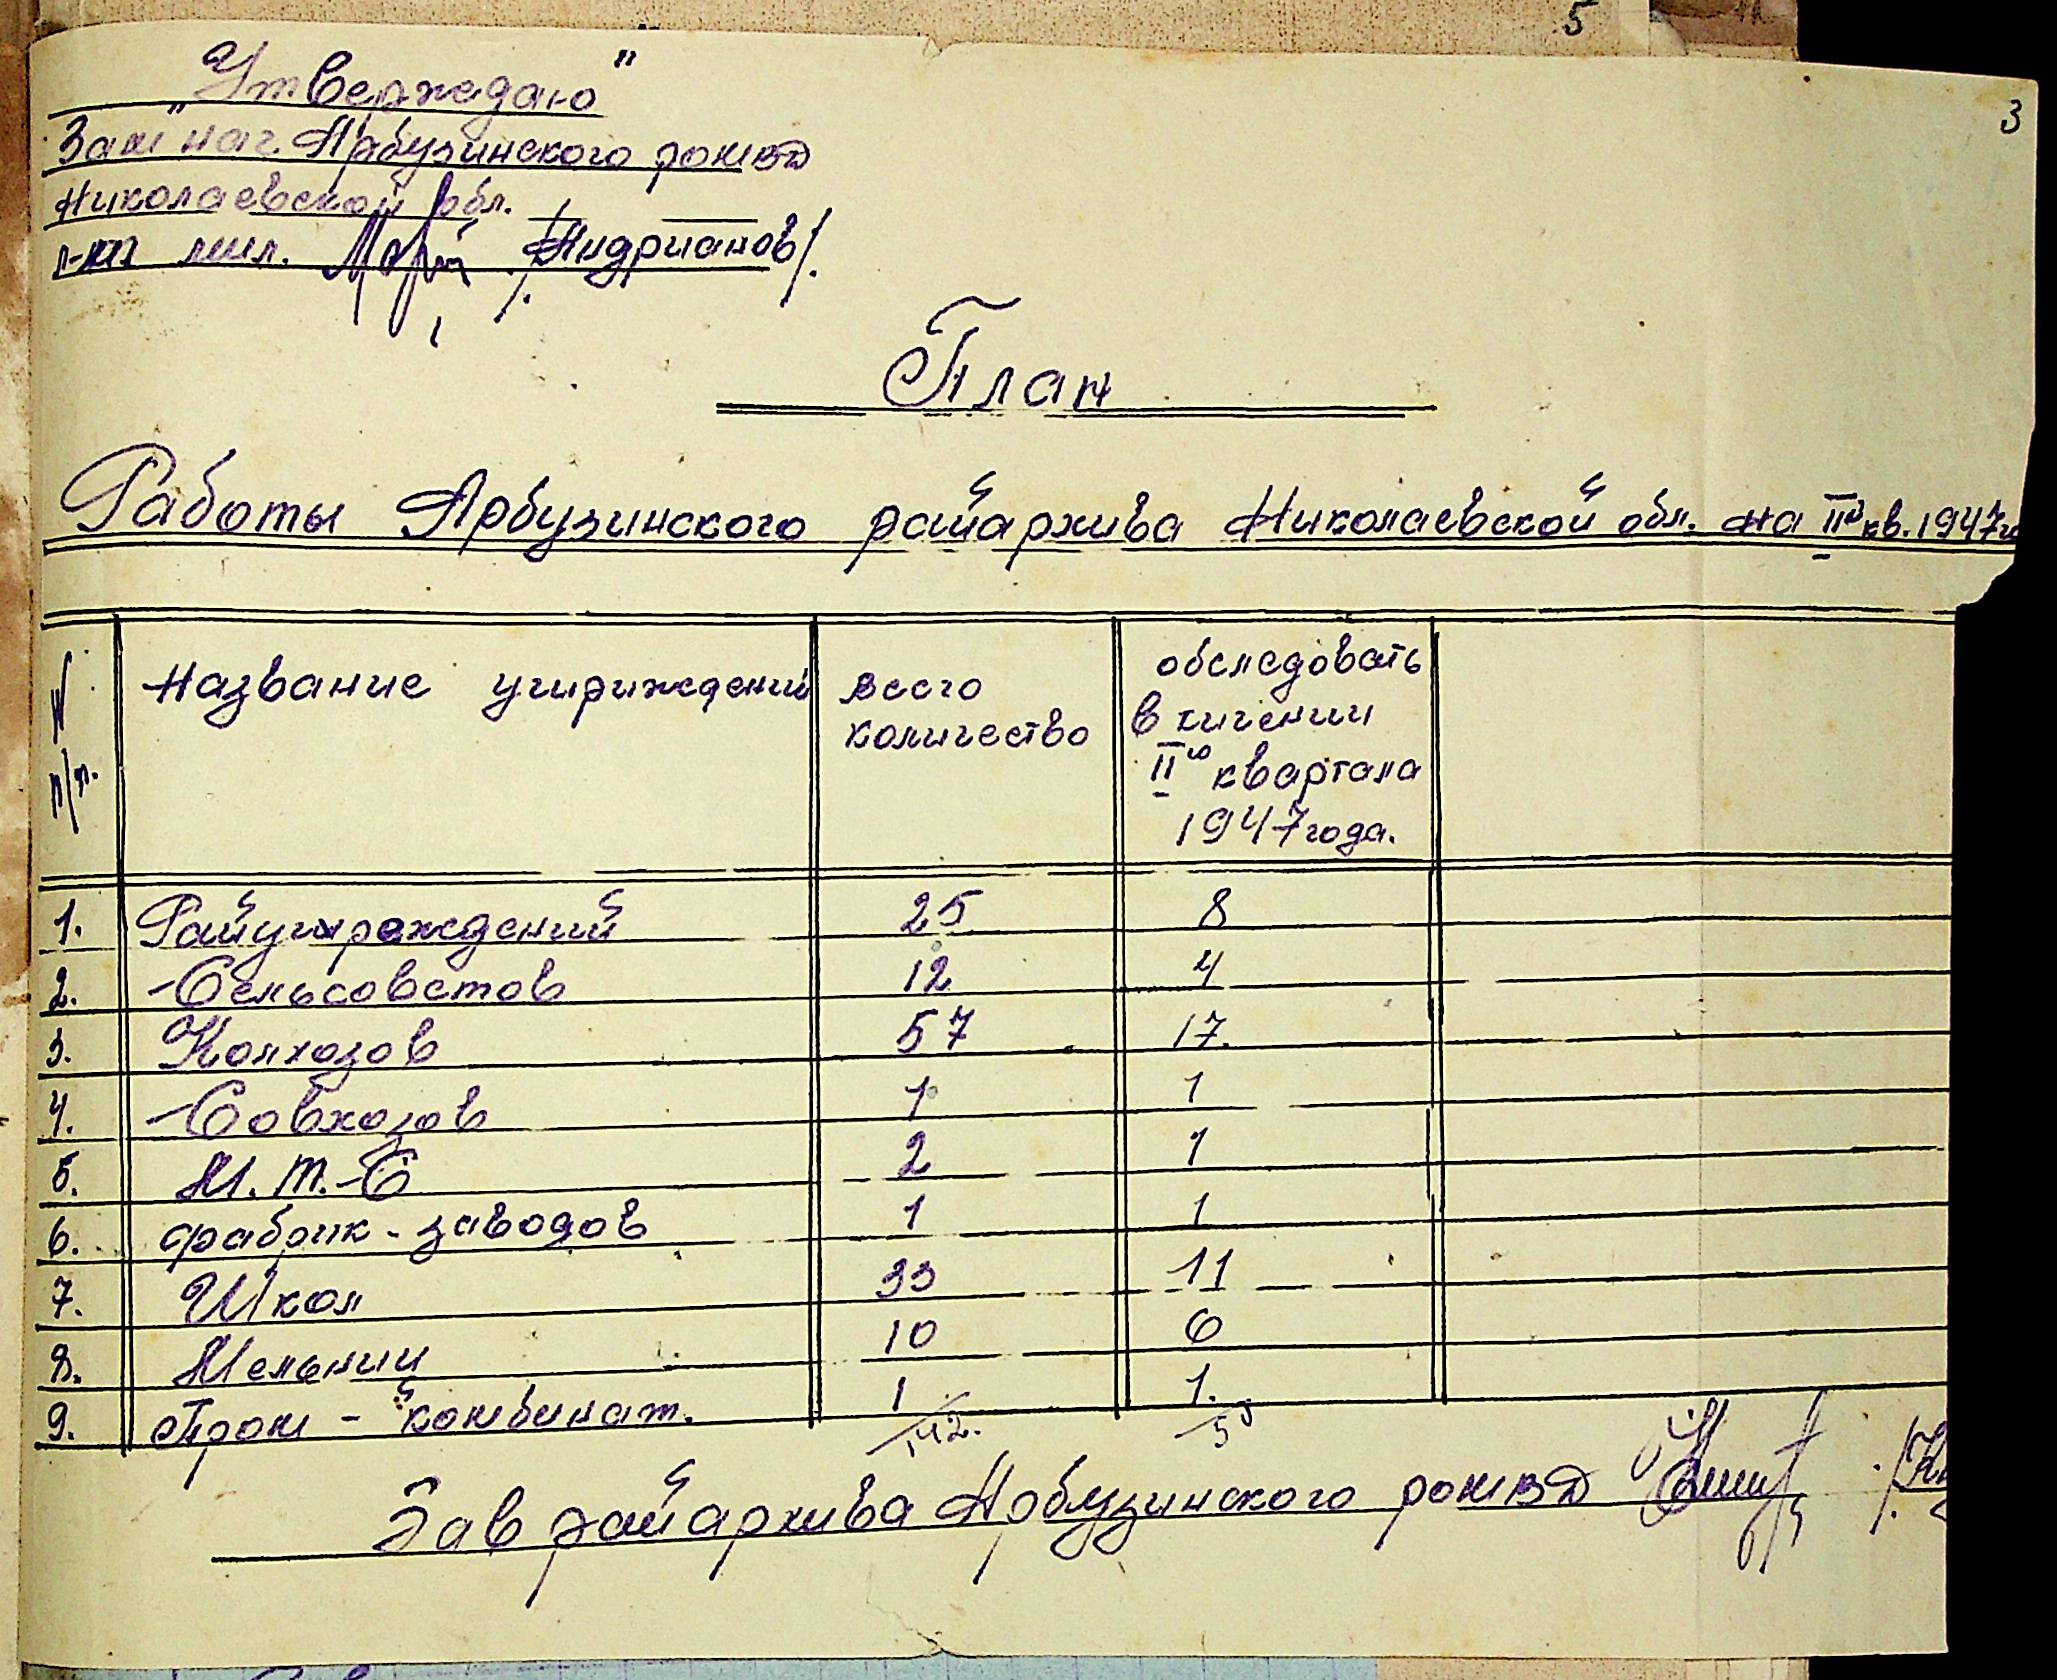 5
3
„Утверждаю"
Зам нач. Арбузинского РОМВД
Николаевской обл.
л-нт мил. /Андрианов/.
План
Работы Арбузинского райархива Николаевской обл. на IIй кв. 1947г
N п/п. Название учириждений всего количество обследовать в тичении IIго квартала 1947 года.
1. Райучреждений 25 8
2. Сельсоветов 12 4
3. Колхозов 57 17.
4. Совхозов 1 1
5. М.Т.-С 2 1
6. фабрик-заводов 1 1
7. Школ 33 11
8. Мельниц 10 6
9. Пром-комбинат. 1 1.
142. 50
Зав райархива Арбузинского РОМВД